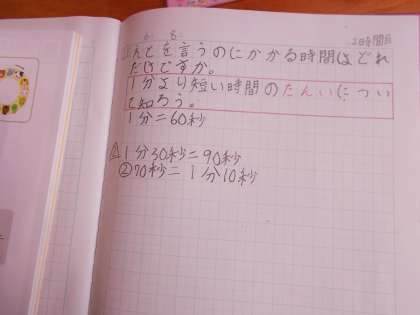 6 8
2時間目
んとを言うのにかかる時間はどれ
だけですか。
1分より短い時間のたんいについ
て知ろう。
1分=60秒
①1分30秒=90秒
②70秒=1分10秒